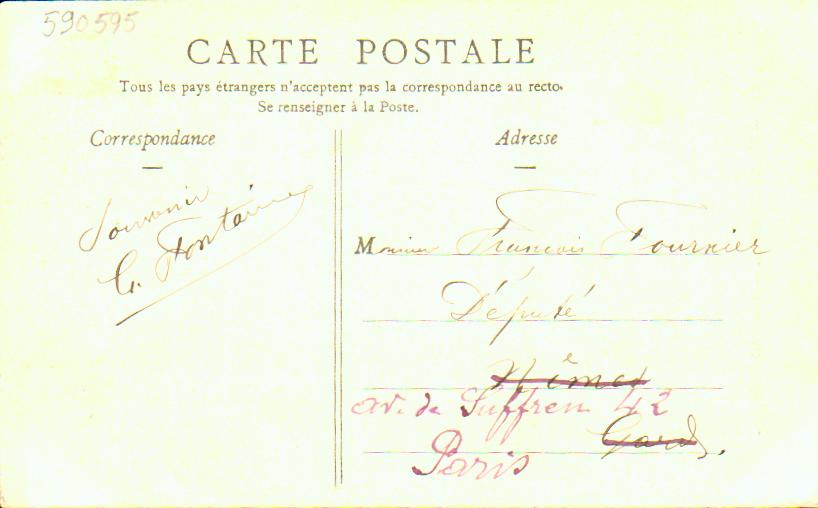 590595
CARTE POSTALE
Tous les pays étrangers n'acceptent pas la correspondance au recto.
Se renseigner à la Poste.
Correspondance
Adresse
Souvenir
G. Fontaine
Monsieur François Fournier
Député
Nîmes
av. de Suffren 42
Gard.
Paris